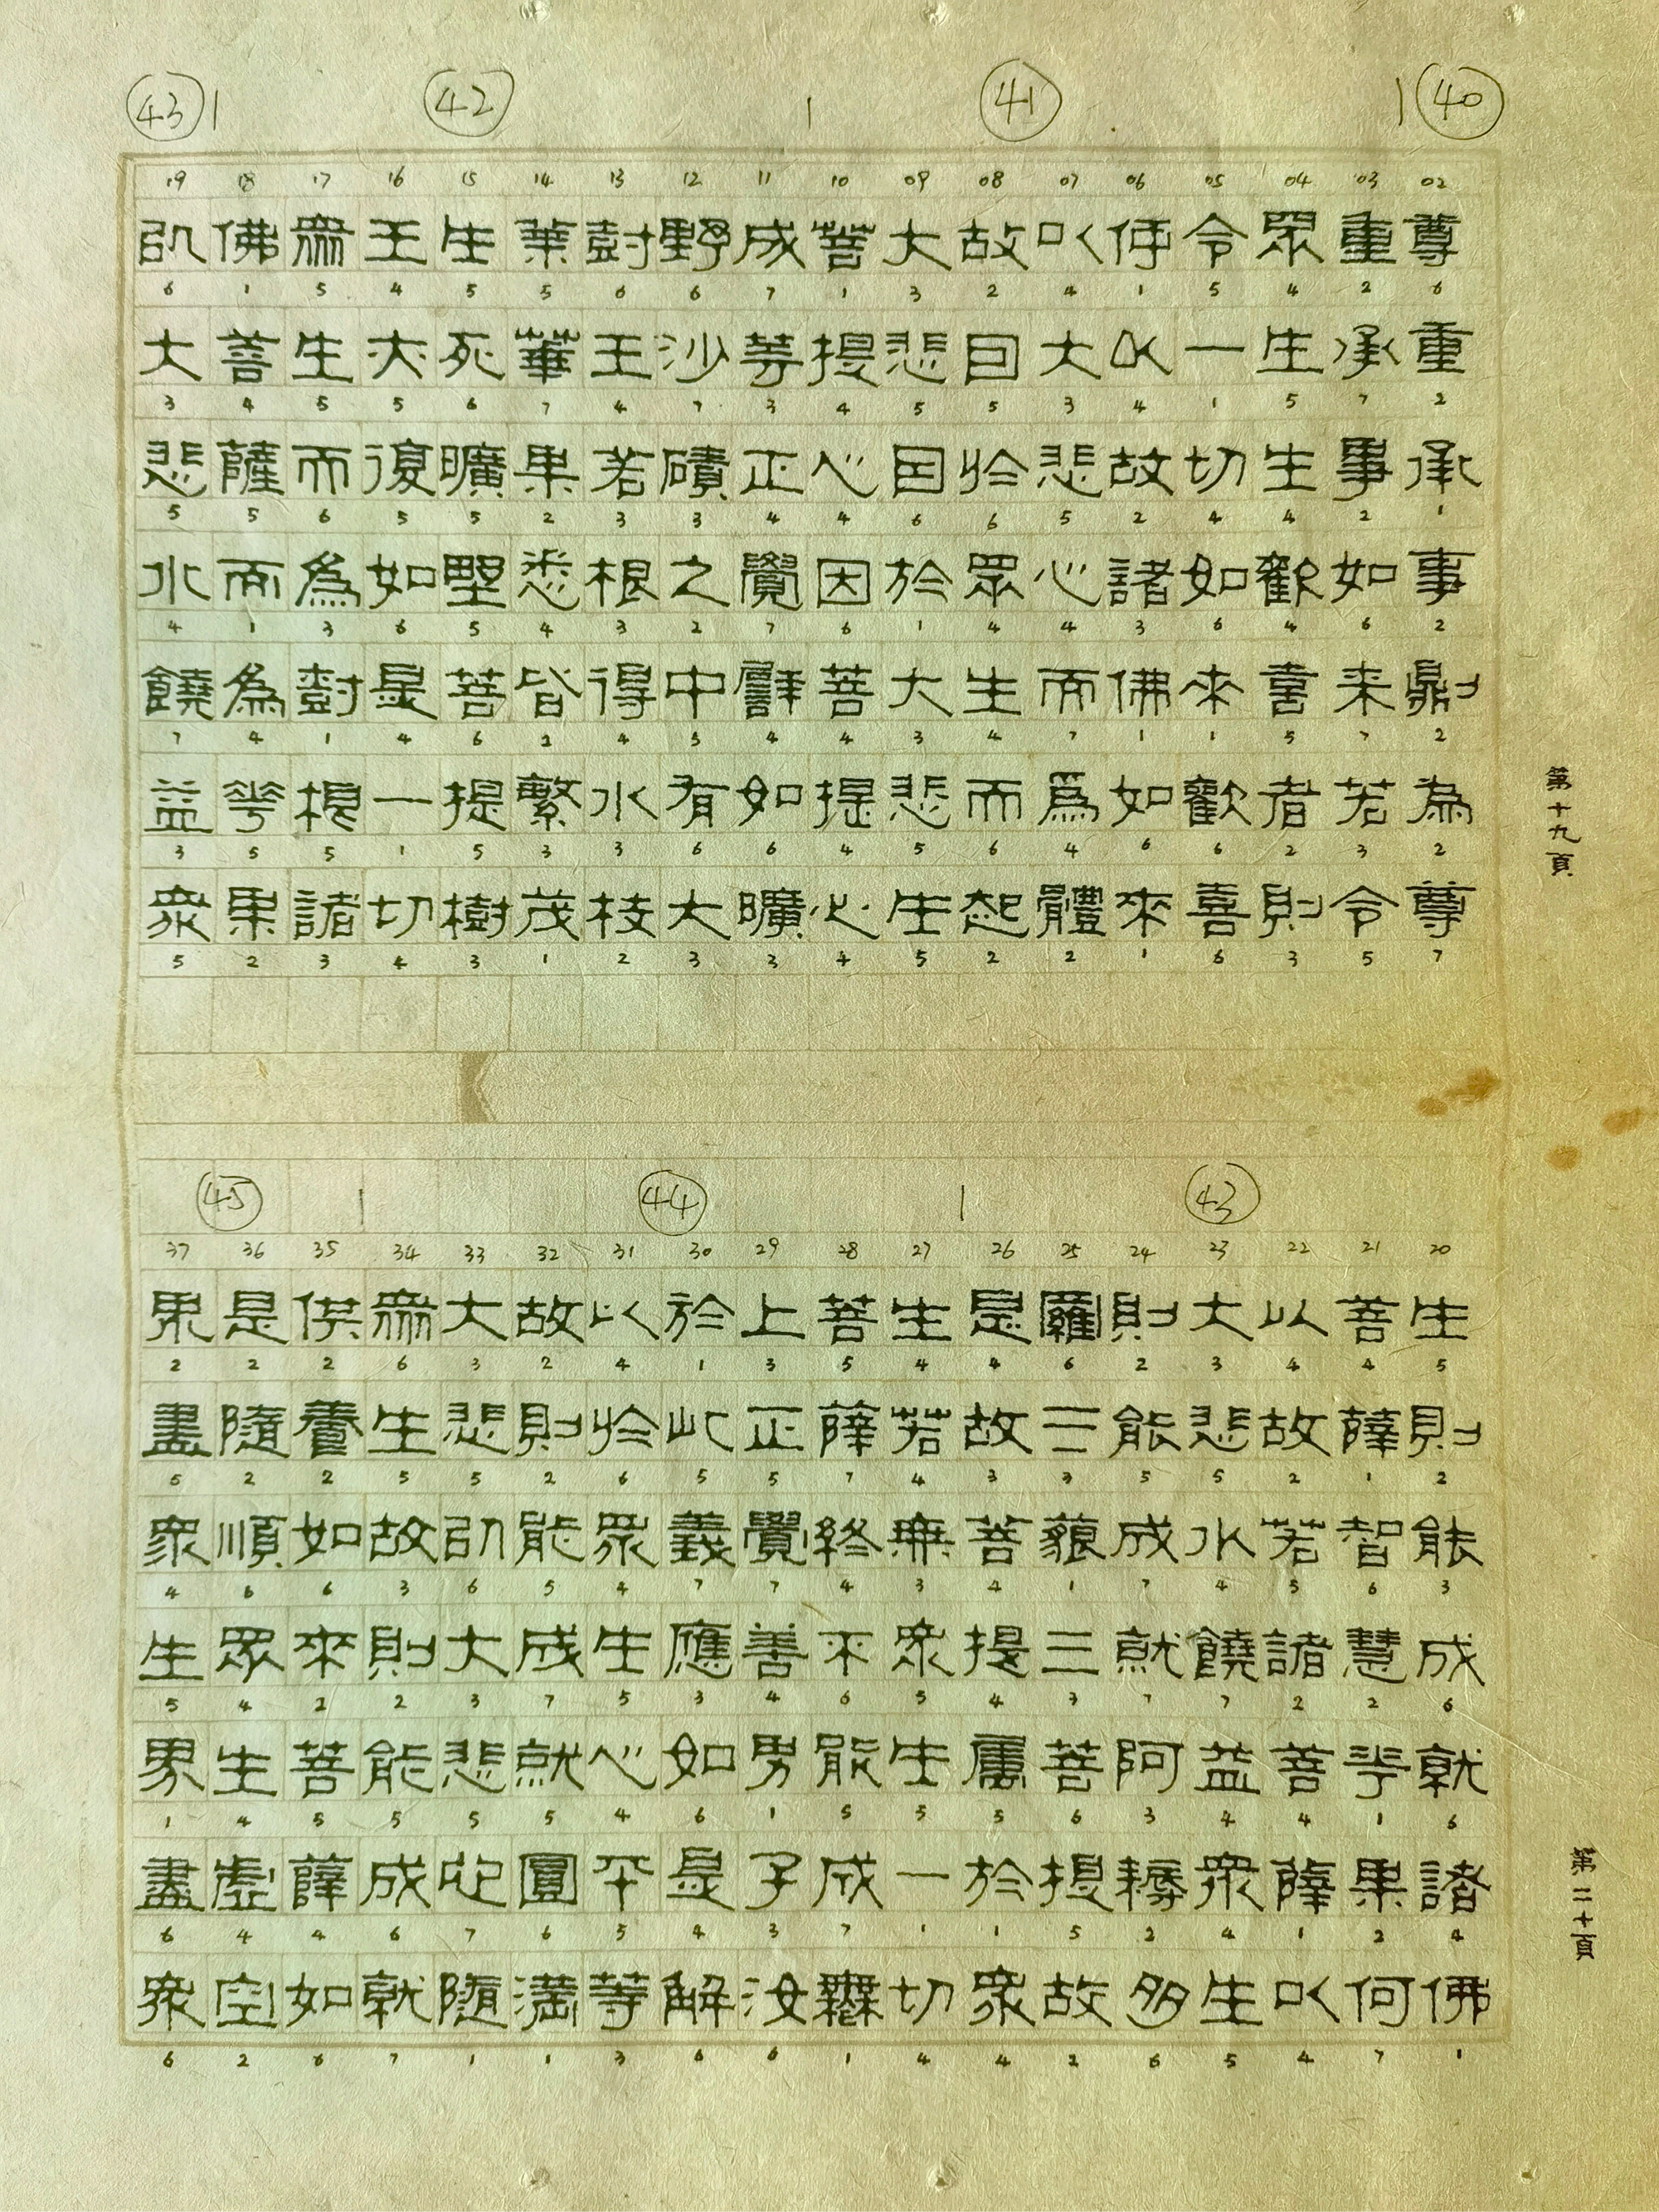 ㊵ ㊶ ㊷ ㊸
02 03 04 05 06 07 08 09 10 11 12 13 14 15 16 17 18 19
尊重承事則為尊
重承事如来若令
眾生生歡喜者則
令一切如來歡喜
何以故諸佛如來
以大悲心而為體
故因於眾生而起
大悲因於大悲生
菩提心因菩提心
成等正覺譬如曠
野沙磧之中有大
樹王若根得水枝
葉華果悉皆繁茂
生死曠野菩提樹
王亦復如是一切
眾生而為樹根諸
佛菩薩而為花果
以大悲水饒益眾
第十九頁
㊸ ㊹ ㊺
20 21 22 23 24 25 26 27 28 29 30 31 32 33 34 35 36 37
生則能成就諸佛
菩薩智慧花果何
以故若諸菩薩以
大悲水饒益眾生
則能成就阿耨多
羅三藐三菩提故
是故菩提屬於眾
生若無眾生一切
菩薩終不能成無
上正覺善男子汝
於此義應如是解
以於眾生心平等
故則能成就圓滿
大悲以大悲心隨
眾生故則能成就
供養如來菩薩如
是隨順眾生虛空
界盡眾生界盡眾
第二十頁